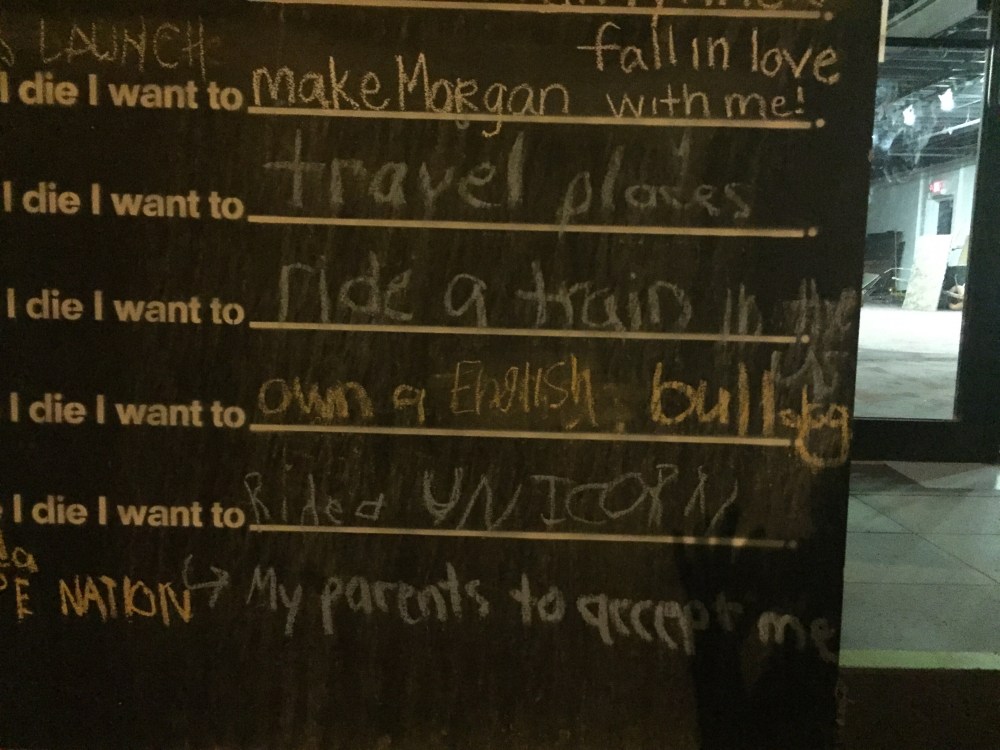 LAUNCH
fall in love
I die I want to make Morgan with me!.
I die I want to travel places.
I die I want to ride a train in the.
I die I want to own a English bulldog.
I die I want to Rided UNICORN.
NATION → My parents to accept me